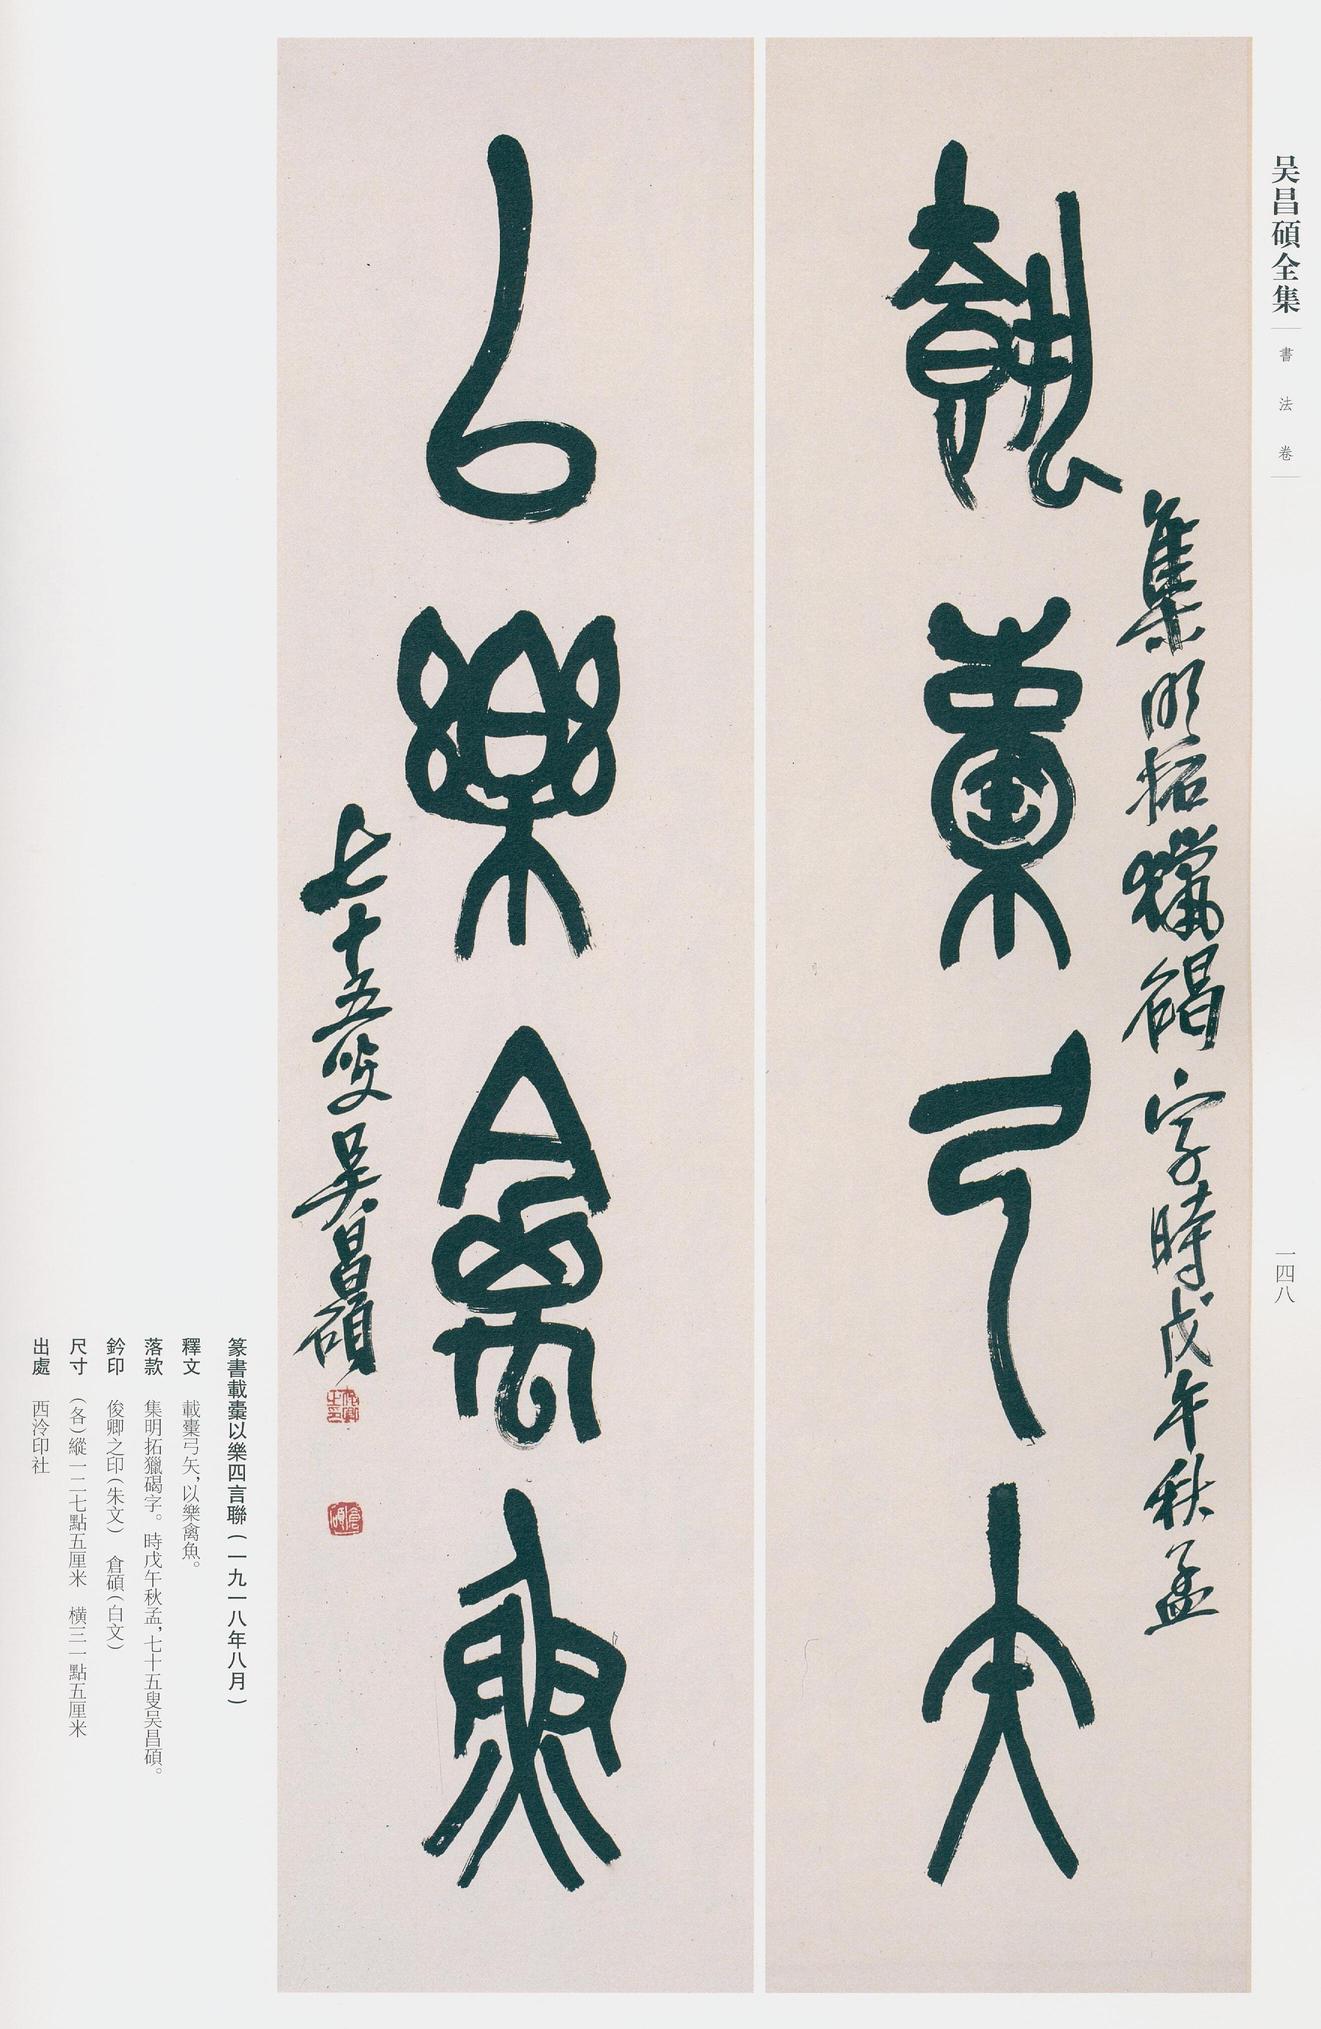 吴昌碩全集
書法卷
一四八
集明拓獵碣字時戊午秋孟
載櫜弓矢
以樂禽魚
七十五叟吴昌碩
俊卿之印
倉碩
篆書載櫜以樂四言聯（一九一八年八月）
釋文　載櫜弓矢，以樂禽魚。
落款　集明拓獵碣字。時戊午秋孟，七十五叟吴昌碩。
鈐印　俊卿之印（朱文）　倉碩（白文）
尺寸　（各）縱一二七點五厘米　横三一點五厘米
出處　西泠印社